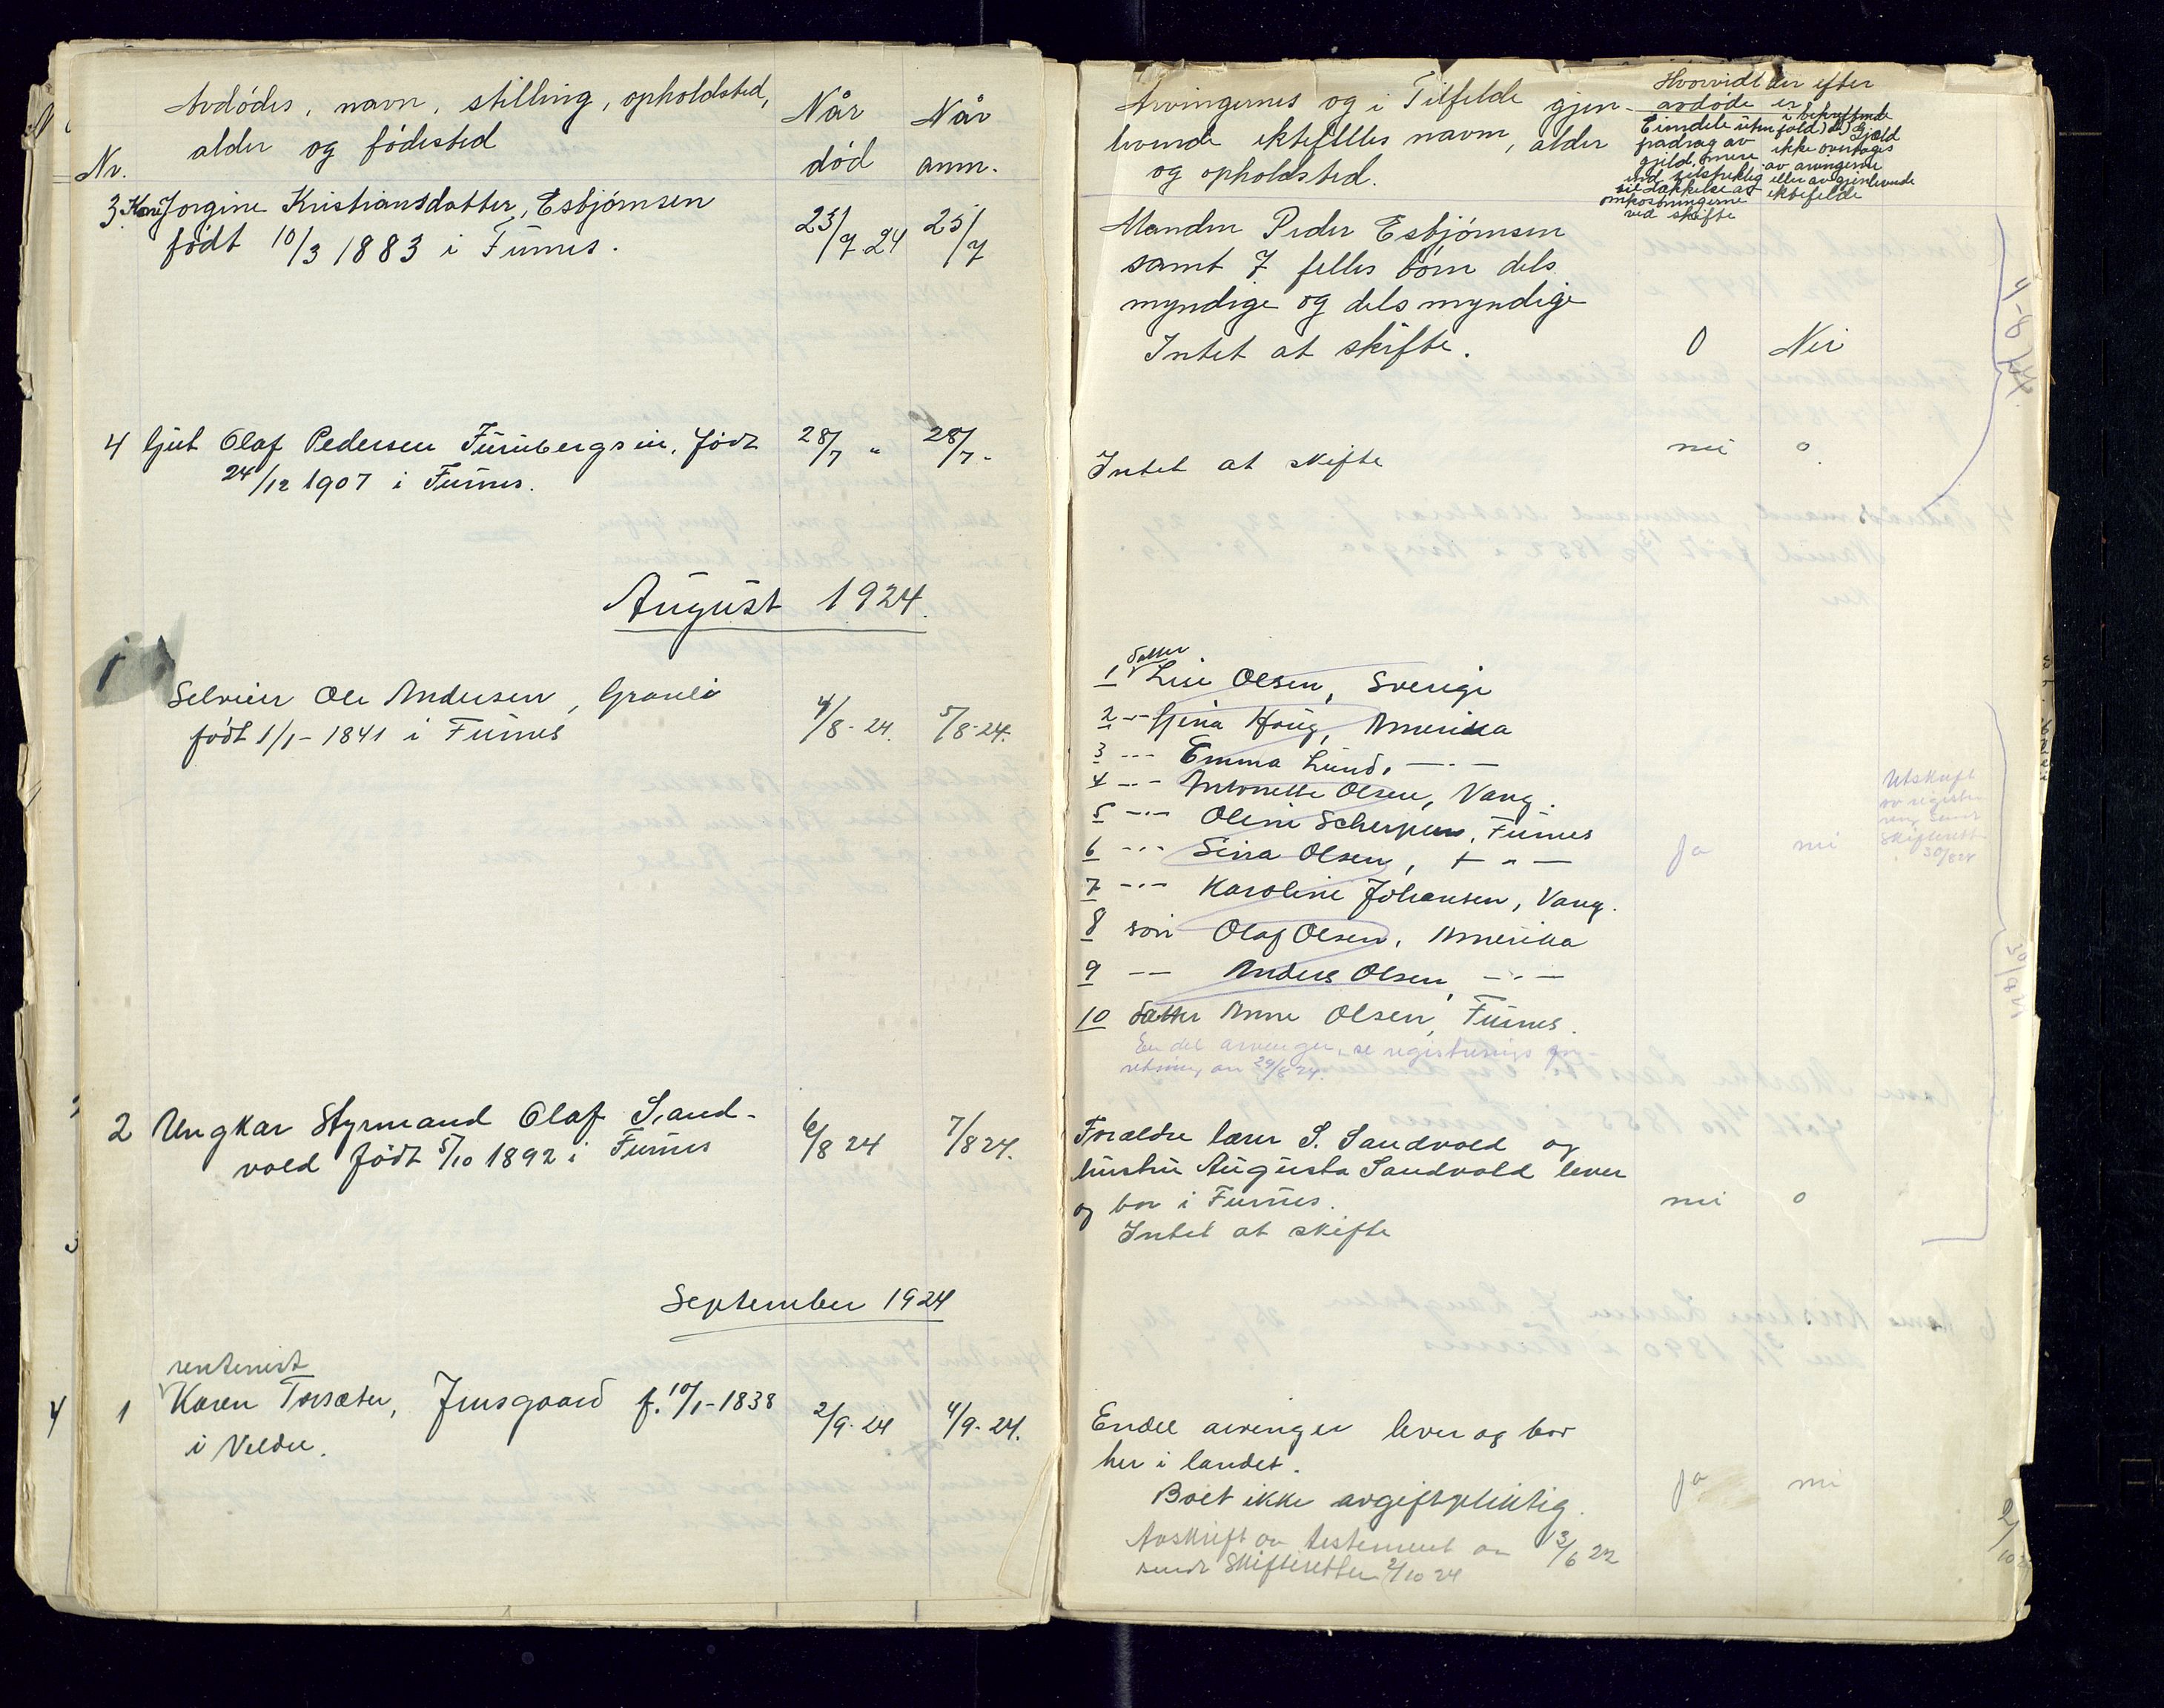 Avdødes, navn, stilling, opholdsted,
alder og fødested
Nr.
Når død
Når anm.
3. Kone Jorgine Kristiansdatter, Esbjørnsen
født 10/3 1883 i Furnes.
23/7 24
25/7
4 Gjut Olaf Pedersen Furubergseie, født
24/12 1907 i Furnes.
28/7 "
28/7 -
August 1924.
1
Selveier Ole Andersen, Granli
født 1/1 - 1841 i Furnes
4/8 - 24.
5/8 - 24.
2 Ungkar Styrmand Olaf Sand-
vold født 5/10 1892 i Furnes
6/8 24
7/8 24.
September 1924
rentenist
1 Karen Torsæter, Jensgaard f. 10/1 - 1838
i Veldre.
2/9 - 24
4/9 - 24.
Arvingernes og i Tilfelde gjen-
levende ektefelles navn, alder
og opholdsted.
Hvorvidt der efter
avdøde er
Eiendele utenfor
fradrag av
gjæld, mere
end tilstrekkelig
til dækkelse av
omkostningerne
ved skifte
i bekræftende
fald, al Gjæld
ikke overtages
av arvingerne
eller av gjenlevende
ektefelde
Manden Peder Esbjørnsen
samt 7 felles børn dels
myndige og dels myndige
Intet at skifte.
0 Nei
4-8/24.
Intet at skifte
nei 0
1 datter Lise Olsen, Sverige
2 -"- Gina Haug, Amerika
3 -"- Emma Lund, -"-
4 -"- Antonette Olsen, Vang.
5 -"- Oline Scherpen, Furnes
6 -"- Sina Olsen, + -"-
7 -"- Karoline Johansen, Vang.
8 søn Olaf Olsen, Amerika
9 -"- Anders Olsen, -"-
10 datter Anne Olsen, Furnes.
En del arvinger, se registrerings for-
retning av 29/8 24.
Ja nei
Utskrift
av registre-
ring sendt
Skifteretten
30/8 24
Forældre lærer S. Sandvold og
hustru Augusta Sandvold lever
og bor i Furnes.
Intet at skifte
nei 0
Endel arvinger lever og bor
her i landet.
Boet ikke avgiftpliktig.
Ja nei
Avskrift av testement av 13/6 22
sendt Skifteretten 2/10 24
2/10